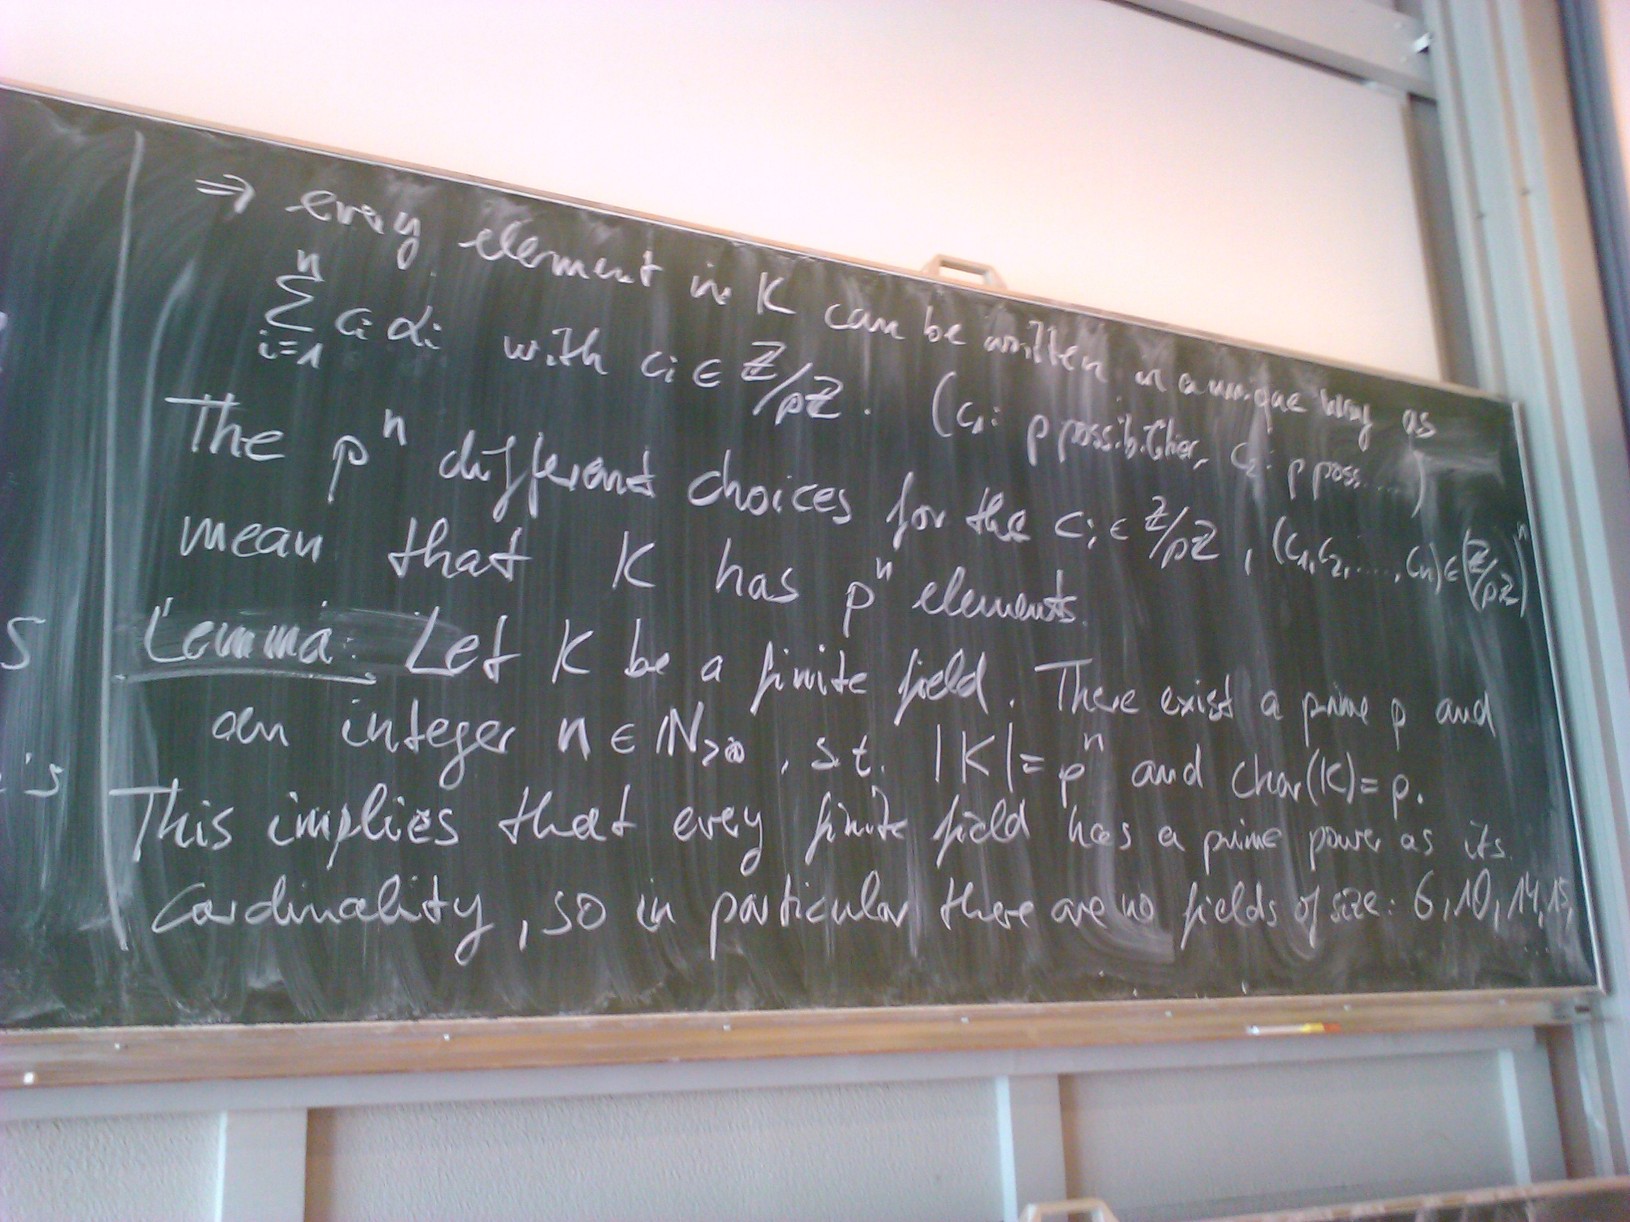 ⇒ every element in K can be written in a unique way as
n∑i=1 ciαi with ci ∈ ℤ/pℤ. (c1: p possibilities, c2: p poss. ....)
The p^n different choices for the ci ∈ ℤ/pℤ, (c1,c2,....,cn) ∈ (ℤ/pℤ)^n
mean that K has p^n elements.
Lemma: Let K be a finite field. There exist a prime p and
an integer n ∈ ℕ>0, s.t. |K| = p^n and char(K) = p.
This implies that every finite field has a prime power as its
Cardinality, so in particular there are no fields of size: 6, 10, 14, 15,